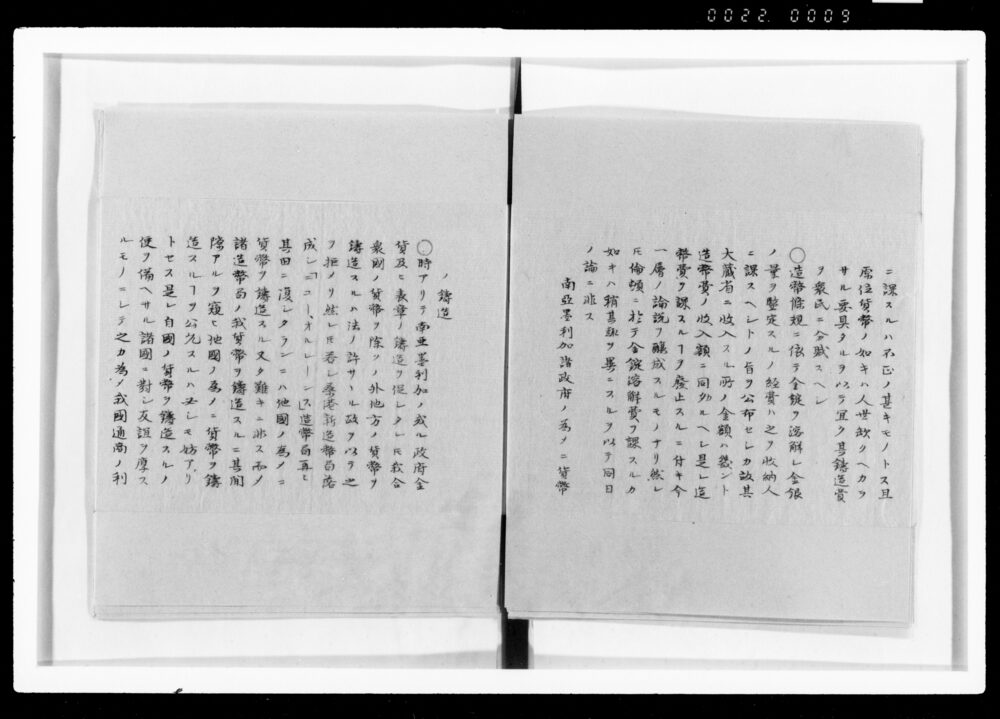 0022 0009
ニ課スルハ不正ノ甚キモノトス且
原位貨幣ノ如キハ人世欽クヘカラ
サル要具タルヲ以テ宜ク其鋳造費
ヲ衆民ニ分賦スヘシ
〇造幣條規ニ依テ金錠ヲ溶解シ金銀
ノ量ヲ整定スルノ経費ハ之ヲ收納人
ニ課スヘシトノ旨ヲ公布セシカ故其
大蔵省ニ收入スル所ノ金額ハ幾ント
造幣費ノ收入額ニ同効ルヘシ是レ造
幣費ヲ課スルヿヲ廢止スルニ付キ今
一層ノ論説ヲ醸成スルモノナリ然レ
𪜈倫頓ニ於テ金錠溶解費ヲ課スルカ
如キハ稍其趣ヲ異ニスルヲ以テ同日
ノ論ニ非ス
南亞墨利加諸政府ノ為メニ貨幣
ノ鋳造
〇時アリテ南亞墨利加ノ或ル政府金
貨及ヒ表章ノ鋳造ヲ促シタレ𪜈我合
衆國ノ貨幣ヲ除クノ外地方ノ貨幣ヲ
鋳造スルハ法ノ許サヽル故ヲ以テ之
ヲ拒メリ然レ𪜈若シ桑港新造幣局落
成シ「ニユー、オルレーンス」造幣局再ヒ
其旧ニ復シタランニハ他國ノ為メニ
貨幣ヲ鋳造スル又タ難キニ非ス而メ
諸造幣局ノ我貨幣ヲ鋳造スルニ其間
隙アルヲ窺ヒ他國ノ為メニ貨幣ヲ鋳
造スルヿヲ公允スルハ必シモ妨アリ
トセス是レ自國ノ貨幣ヲ鋳造スルノ
便ヲ備ヘサル諸國ニ對シ友誼ヲ厚ス
ルモノニシテ之カ為メ我國通商ノ利